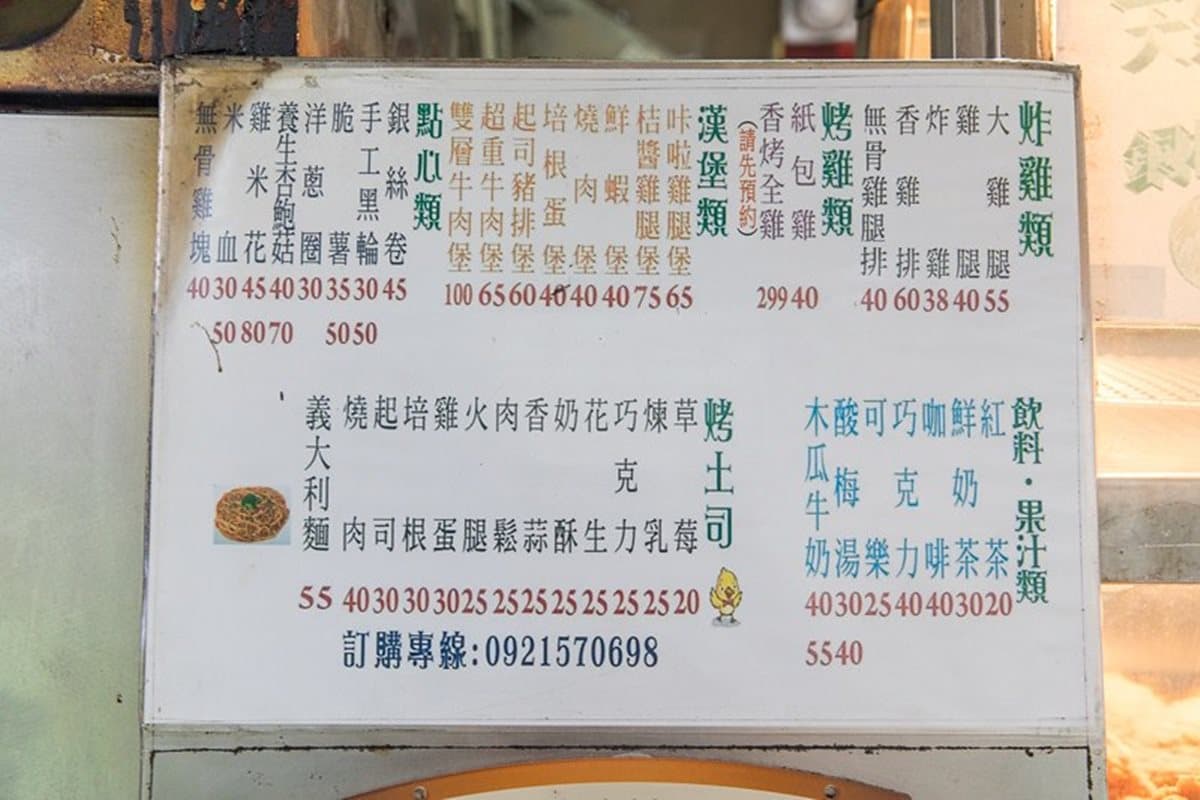 炸雞類
大雞腿 55
雞腿 40
炸雞 38
香雞排 60
無骨雞腿排 40
烤雞類
紙包雞 40
香烤全雞 299
(請先預約)
漢堡類
咔啦雞腿堡 65
桔醬雞腿堡 75
鮮蝦堡 40
燒肉堡 40
培根蛋堡 40
起司豬排堡 60
超重牛肉堡 65
雙層牛肉堡 100
點心類
銀絲卷 45
手工黑輪 30 50
脆薯 35 50
洋蔥圈 30
養生杏鮑菇 40 70
雞米花 45 80
米血 30 50
無骨雞塊 40
飲料・果汁類
紅茶 20
鮮奶茶 30
咖啡 40
巧克力 40
可樂 25
酸梅湯 30 40
木瓜牛奶 40 55
烤土司
草莓 20
煉乳 25
巧克力 25
花生 25
奶酥 25
香蒜 25
肉鬆 25
火腿 25
雞蛋 30
培根 30
起司 30
燒肉 40
義大利麵 55
訂購專線:0921570698